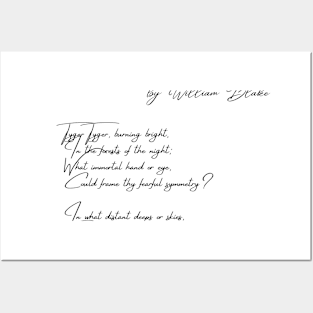 By William Blake
Tyger Tyger, burning bright,
In the forests of the night;
What immortal hand or eye,
Could frame thy fearful symmetry?
In what distant deeps or skies,